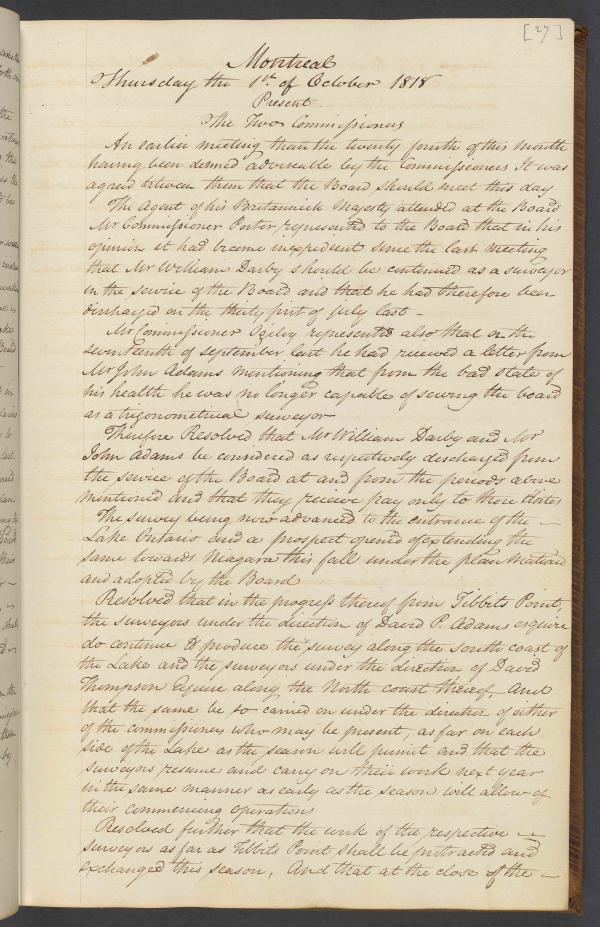 [27]
Montreal
Thursday the 1st. of October 1818
Present
The Two Commissioners
An earlier meeting than the twenty fourth of this month
having been deemed adviseable by the Commissioners It was
agreed between them that the Board should meet this day
The Agent of his Britannick Majesty attended at the Board
Mr Commissioner Porter, represented to the Board that in his
opinion it had become inexpedient since the last meeting
that Mr William Darby should be continued as a surveyor
in the service of the Board and that he had therefore been
discharged on the thirty first of july last -
Mr Commissioner Ogilvy represented also that on the
seventeenth of september last he had received a letter from
Mr John Adams mentioning that from the bad state of
his health he was no longer capable of serving the board
as a trigonometrical surveyor
Therefore Resolved that Mr William Darby and Mr
John Adams be considered as respectively discharged from
the service of the Board at and from the periods above
mentioned and that they receive pay only to those dates
The survey being now advanced to the entrance of the -
Lake Ontario and a prospect opened of extending the
same towards Niagara this fall under the plan
and adopted by the Board
Resolved that in the progress thereof from Tibbits Point,
the surveyors under the direction of David P. Adams esquire
do continue to produce the survey along the south coast of
the Lake and the surveyors under the direction of David
Thompson Esquire along the North coast thereof, And
that the same be so carried on under the direction of either
of the commissioners who may be present, as far on each
side of the Lake as the season will permit and that the
surveyors resume and carry on their work next year
in the same manner as early as the season will allow of
their commencing operations
Resolved further that the work of the respective -
surveyors as far as Tibbits Point shall be protracted and
exchanged this season, And that at the close of the -